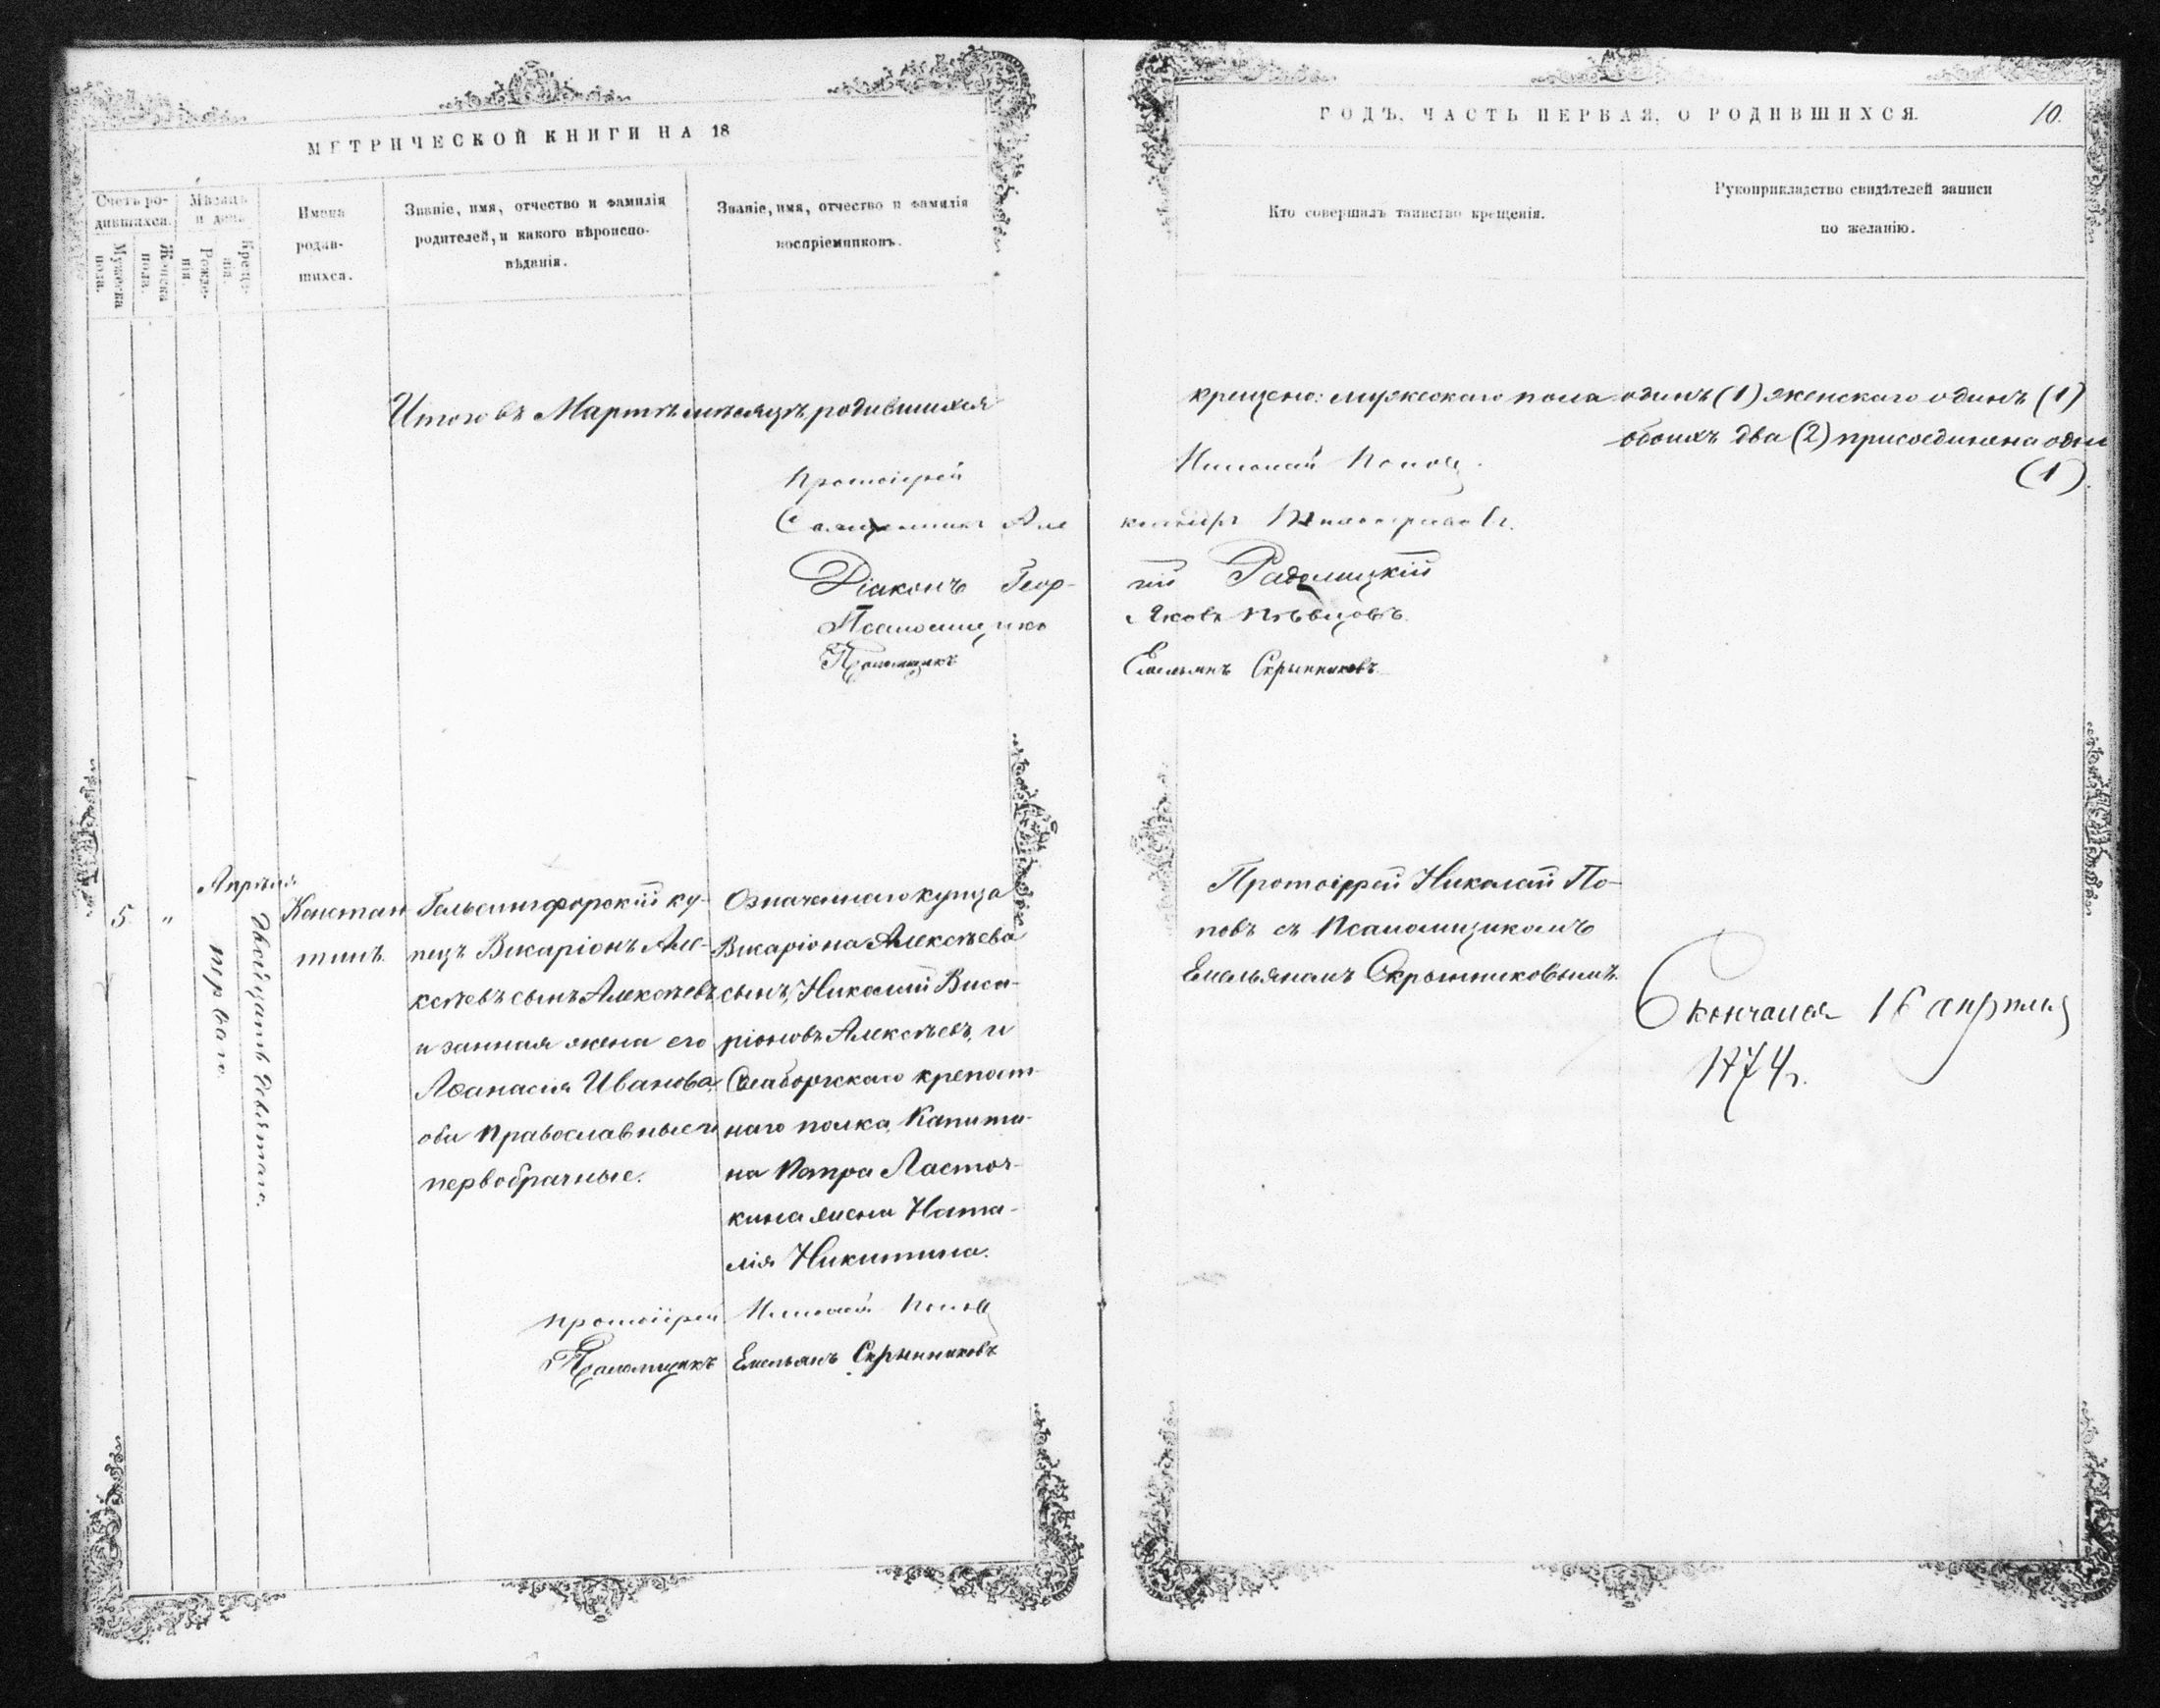 МЕТРИЧЕСКОЙ КНИГИ НА 18
Счетъ ро-
дившихся.
Мужеска
пола.
Женска
пола.
Мѣсяцъ
и день
Рожде-
нія.
Креще-
нія.
Имена
родив-
шихся.
Званіе, имя, отчество и фамилія
родителей, и какого вѣроиспо-
вѣданія.
Званіе, имя, отчество и фамилія
воспріемниковъ.
Итого въ Мартѣ мѣсяцѣ родившихся
Протоіерей
Священникъ Але
Діаконъ Геор-
Псаломщикъ
Псаломщикъ
5. "
Апрѣля
перваго.
Двадцать девятаго.
Констан
тинъ.
Гельсингфорскій ку-
пецъ Висаріонъ Але-
ксѣевъ сынъ Алексѣевъ
и законная жена его
Аѳанасія Иванова,
оба православные и
первобрачные.
Означеннаго купца
Висаріона Алексѣева
сынъ, Николай Виса-
ріоновъ Алексѣевъ, и
Свеаборгскаго крѣпост-
наго полка, Капита-
на Петра Ласточ-
кина жена Ната-
лія Никитина.
Протоіерей Николай Поповъ
Псаломщикъ Емельянъ Скрынниковъ
ГОДЪ, ЧАСТЬ ПЕРВАЯ, О РОДИВШИХСЯ.
10.
Кто совершалъ таинство крещенія.
Рукоприкладство свидѣтелей записи
по желанію.
крещено: мужескаго пола одинъ (1) женскаго одинъ (1)
обоихъ два (2) присоединена одна
(1).
Николай Поповъ.
ксандръ
гій Радолицкій
Яковъ Пѣвцовъ.
Емельянъ Скрынниковъ
Протоіерей Николай По-
повъ съ Псаломщикомъ
Емельяномъ Скрынниковымъ.
Скончался 16 апрѣля
1874 г.